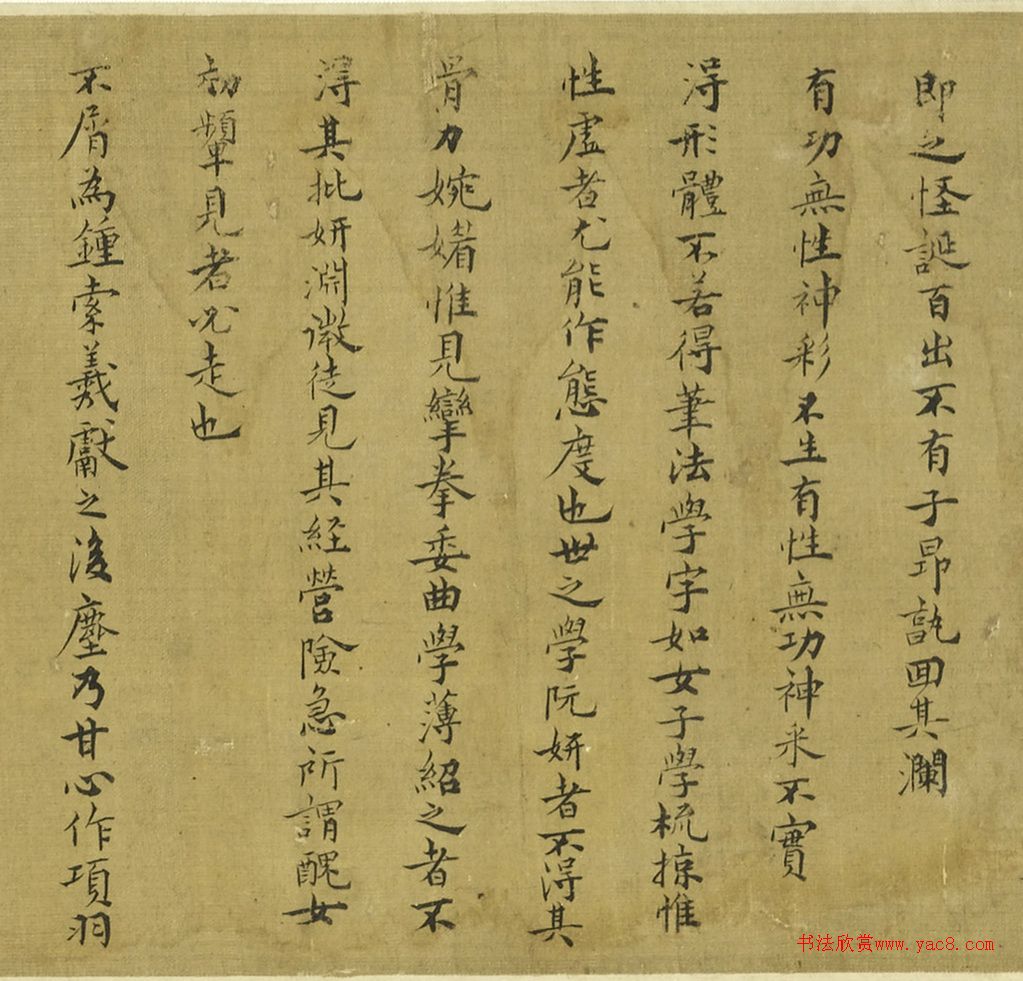 即之怪誕百出不有子昂孰回其瀾
有功無性神彩不生有性無功神采不實
淂形體不若得筆法學字如女子學梳掠惟
性虛者尤能作態度也世之學阮妍者不淂其
骨力婉媚惟見攣拳委曲學薄紹之者不
淂其批妍淵微徒見其経營險急所謂醜女
効顰見者必走也
不屑為鍾索羲獻之後塵乃甘心作項羽
书法欣赏www.yac8.com